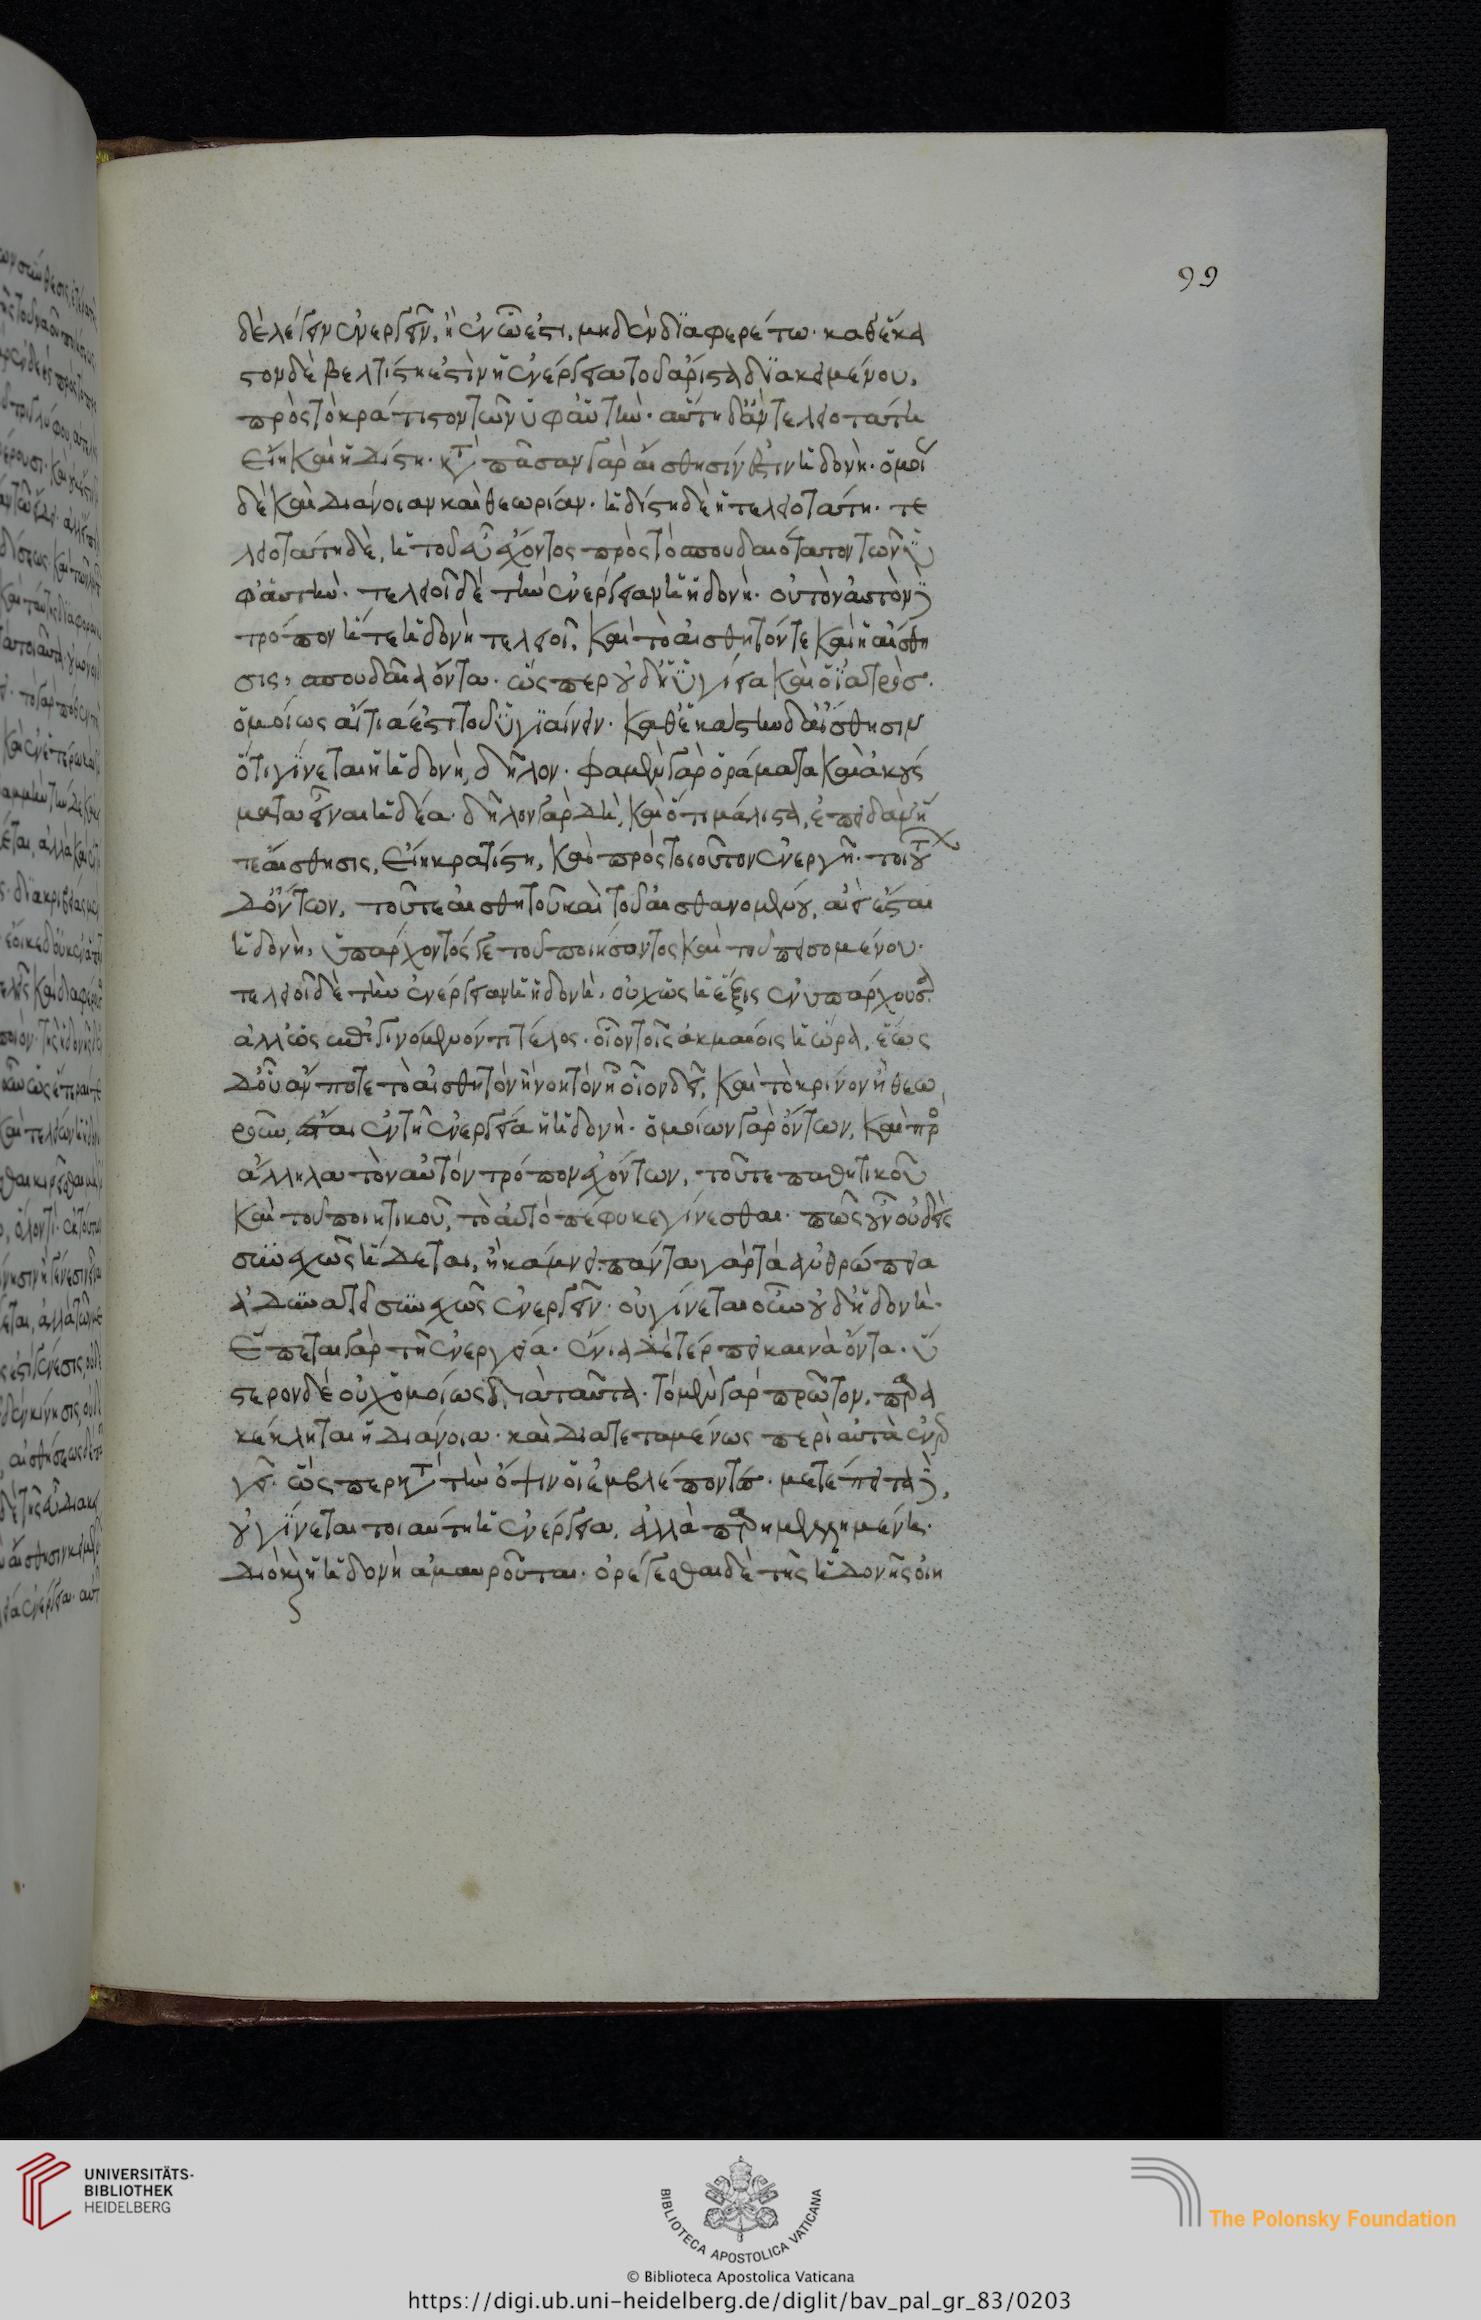 99
δὲ λέγειν ἐνεργεῖν, ἢ ἐν ᾧ ἐστι, μηδὲν διαφερέτω. καθ' ἕκα
στον δὲ βελτίστη ἐστὶν ἡ ἐνέργεια τοῦ ἄριστα διακειμένου,
πρὸς τὸ κράτιστον τῶν ὑφ' αὑτήν. αὕτη δ' ἂν τελειοτάτη
εἴη καὶ ἡδίστη. κατὰ πᾶσαν γὰρ αἴσθησίν ἐστιν ἡδονή. ὁμοί
δὲ καὶ διάνοιαν καὶ θεωρίαν. ἡδίστη δὲ ἡ τελειοτάτη. τε
λειοτάτη δὲ, ἡ τοῦ εὖ ἔχοντος πρὸς τὸ σπουδαιότατον τῶν ὑ
φ' αὑτήν. τελειοῖ δὲ τὴν ἐνέργειαν ἡ ἡδονή. οὐ τὸν αὐτὸν δὲ
τρόπον ἥ τε ἡδονὴ τελειοῖ, καὶ τὸ αἰσθητόν τε καὶ ἡ αἴσθη
σις, σπουδαῖα ὄντα. ὥσπερ οὐδ' ἡ ὑγίεια καὶ ὁ ἰατρὸς
ὁμοίως αἴτιά ἐστι τοῦ ὑγιαίνειν. καθ' ἑκάστην δ' αἴσθησιν
ὅτι γίνεται ἡ ἡδονὴ, δῆλον. φαμὲν γὰρ ὁράματα καὶ ἀκούσ
ματα εἶναι ἡδέα. δῆλον γὰρ δὴ, καὶ ὅτι μάλιστα, ἐπειδὰν ἥ
τε αἴσθησις, εἴη κρατίστη, καὶ πρὸς τοιοῦτον ἐνεργῇ. τοιού
δ' ὄντων, τοῦ τε αἰσθητοῦ καὶ τοῦ αἰσθανομένου, αἰεὶ ἔσται
ἡδονὴ, ὑπάρχοντός γε τοῦ ποιήσοντος καὶ τοῦ πεισομένου.
τελειοῖ δὲ τὴν ἐνέργειαν ἡ ἡδονὴ, οὐχ ὡς ἡ ἕξις ἐνυπάρχουσα
ἀλλ' ὡς ἐπιγινόμενόν τι τέλος. οἷον τοῖς ἀκμαίοις ἡ ὥρα, ἕως
δ' οὖν ἄν ποτε τὸ αἰσθητὸν ἢ νοητὸν ᾖ οἷον δεῖ, καὶ τὸ κρῖνον ἢ θεω
ροῦν, ἔσται ἐν τῇ ἐνεργείᾳ ἡ ἡδονή. ὁμοίων γὰρ ὄντων, καὶ πρὸ
ἄλληλα τὸν αὐτὸν τρόπον ἐχόντων, τοῦ τε παθητικοῦ
καὶ τοῦ ποιητικοῦ, τὸ αὐτὸ πέφυκε γίνεσθαι. πῶς οὖν οὐδεὶς
συνεχῶς ἥδεται, ἢ κάμνει. πάντα γὰρ τὰ ἀνθρώπεια
ἀδυνατεῖ συνεχῶς ἐνεργεῖν. οὐ γίνεται οὖν οὐδ' ἡδονή.
ἕπεται γὰρ τῇ ἐνεργείᾳ. ἔνια δὲ τέρπει καινὰ ὄντα. ὕ
στερον δὲ οὐχ ὁμοίως διὰ ταῦτα. τὸ μὲν γὰρ πρῶτον, παρα
κέκληται ἡ διάνοια. καὶ διατεταμένως περὶ αὐτὰ ἐνερ
γεῖ. ὥσπερ κατὰ τὴν ὄψιν οἱ ἐμβλέποντες. μετέπειτα δὲ,
οὐ γίνεται τοιαύτη ἡ ἐνέργεια, ἀλλὰ παρημελημένη.
διὸ καὶ ἡ ἡδονὴ ἀμαυροῦται. ὀρέγεσθαι δὲ τῆς ἡδονῆς οἰη
UNIVERSITÄTS-
BIBLIOTHEK
HEIDELBERG
BIBLIOTECA APOSTOLICA VATICANA
The Polonsky Foundation
© Biblioteca Apostolica Vaticana
https://digi.ub.uni-heidelberg.de/diglit/bav_pal_gr_83/0203